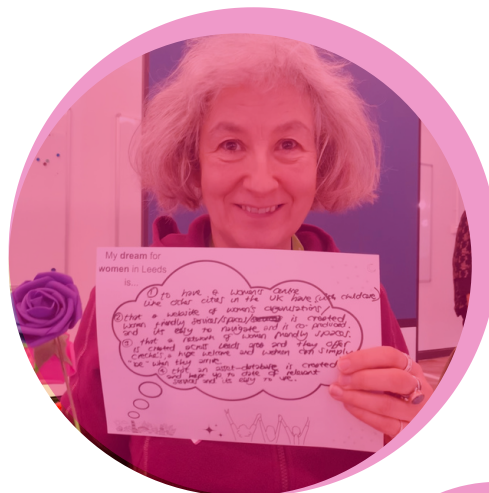 My dream for
women in Leeds
is...
① to have a women's centre
like other cities in the UK have (with childcare)
② that a website of women's organisations/
women friendly services/spaces is created
and its easy to navigate and is co-produced.
③ that a network of women friendly spaces
is created across Leeds and they offer
creches, a huge welcome and women can simply
"be" when they arrive.
④ that an database is created
and kept up to date of relevant
services and its easy to use.